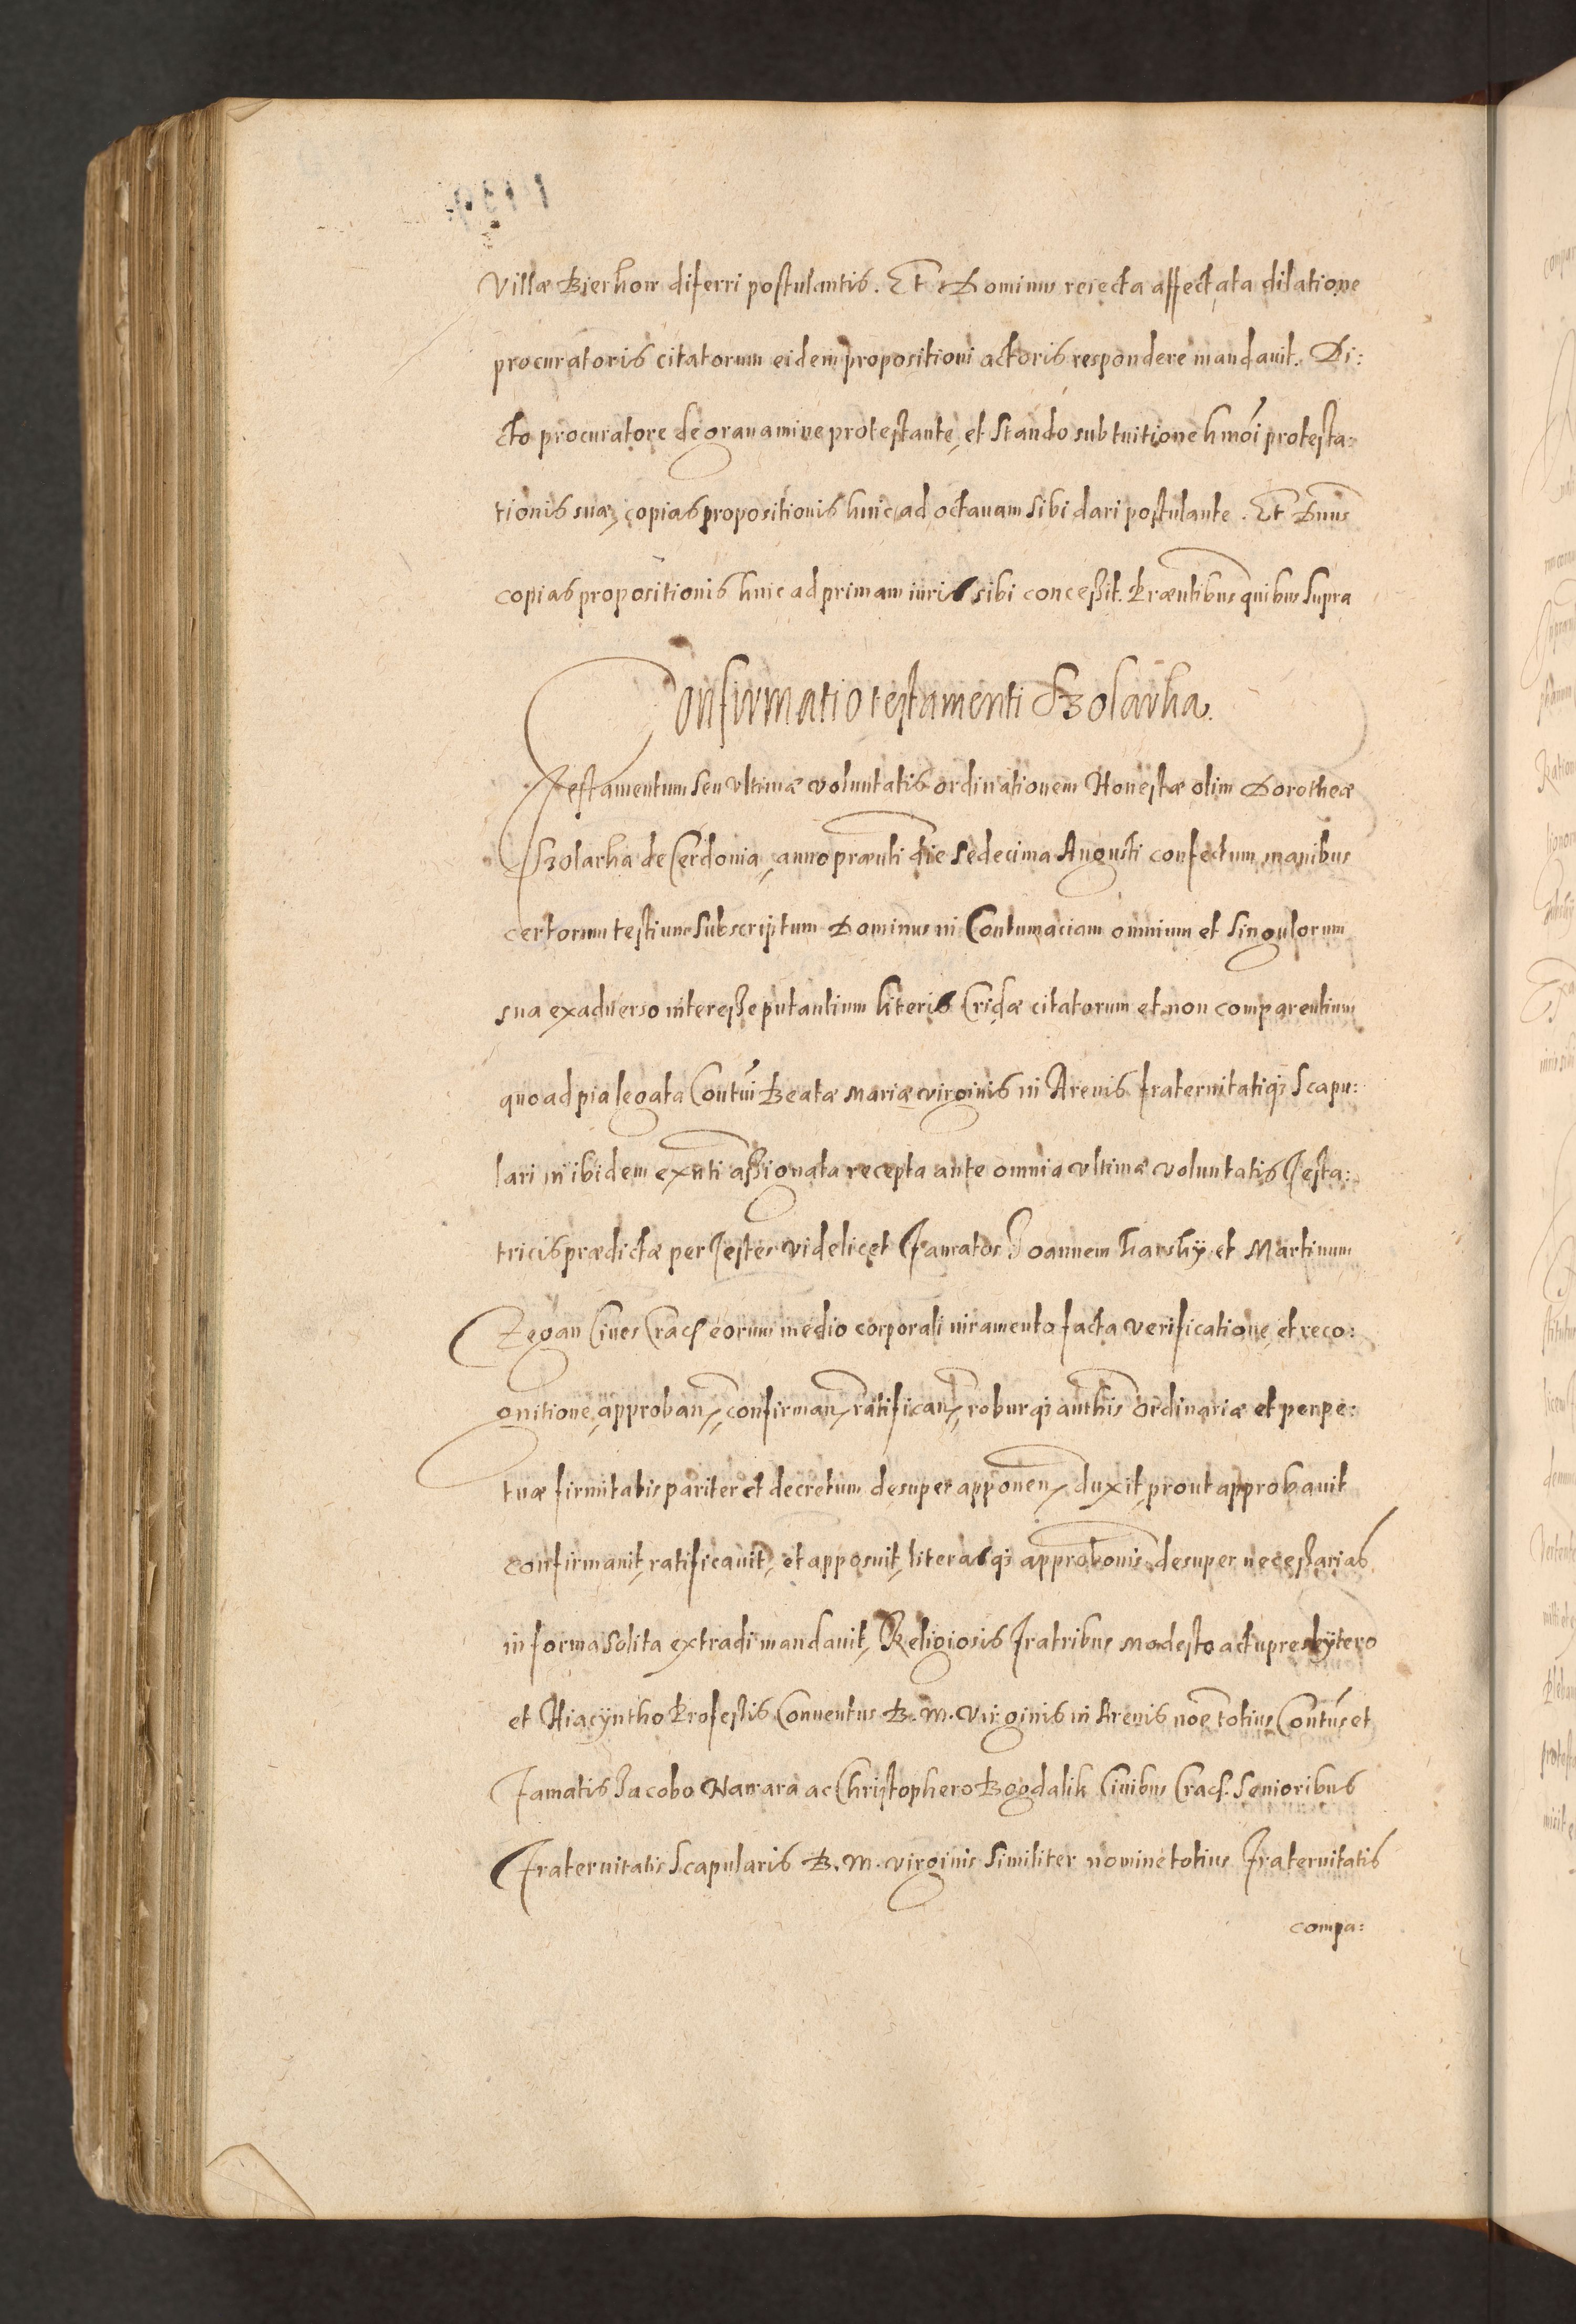 Villæ Bierkow diferri postulantis. Et Dominus reiecta affectata dilatione
procuratoris citatorum eidem propositioni actoris respondere mandauit. Di:
cto procuratore de grauamine protestante, et stando sub tuitione hmōi protesta:
tionis suæ, copias propositionis huic ad octauam sibi dari postulante. Et Dnus
copias propositionis huic ad primam iuris sibi conceßit. Præntibus quibus supra
Confirmatio testamenti Szolarka.
Testamentum seu vltimæ voluntatis ordinationem Honestæ olim Dorotheæ
Szolarka de Cerdonia, anno prænti die sedecima Augusti confectum, manibus
certorum testium subscriptum Dominus in Contumaciam omnium et singulorum
sua exaduerso intereße putantium literis Cridæ citatorum et non comparentium
quo ad pia legata Contui Beatæ Mariæ virginis in Arenis fraternitatiq3 Scapu:
lari in ibidem exnti aßignata recepta ante omnia vltimæ voluntatis Testa:
tricis prædictæ per Testes videlicet Famatos Joannem et Martinum
Cegan Ciues Crac. eorum medio corporali iuramento facta verificatione, et reco:
gnitione, approban, confirman, ratifican, roburq3 authis ordinariæ et perpe:
tuæ firmitatis pariter et decretum desuper apponen, duxit, prout approbauit
confirmauit, ratificauit, et apposuit, literasq3 approbonis desuper neceßarias
in forma solita extradi mandauit, Religiosis fratribus Modesto actu presbÿtero
et Hiacÿntho Profeßis Conuentus B. M. Virginis in Arenis noe totius Contus et
Famatis Jacobo Nawara ac Christophero Bogdalik Ciuibus Crac. Senioribus
Fraternitatis Scapularis B. M. virginis similiter nomine totius Fraternitatis
compa: